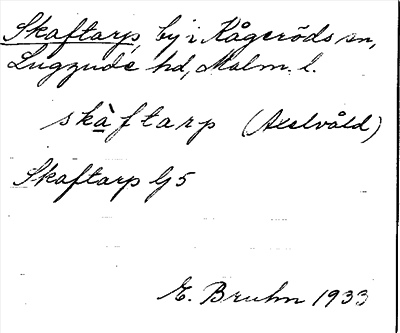 Skaftarp, by i Kågeröds sn,
Luggude hd, Malm. l.
skàftarp (Axelvåld)
Skaftarp G5
E. Bruhn 1933